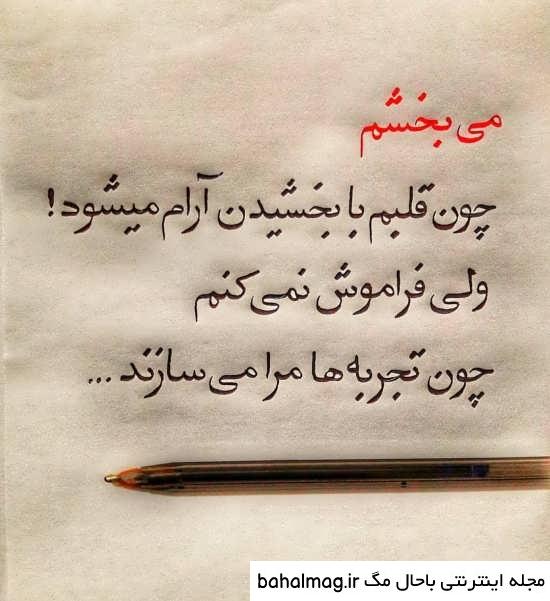 می بخشم
چون قلبم با بخشیدن آرام میشود!
ولی فراموش نمی کنم
چون تجربه ها مرا می سازند ...
مجله اینترنتی باحال مگ bahalmag.ir